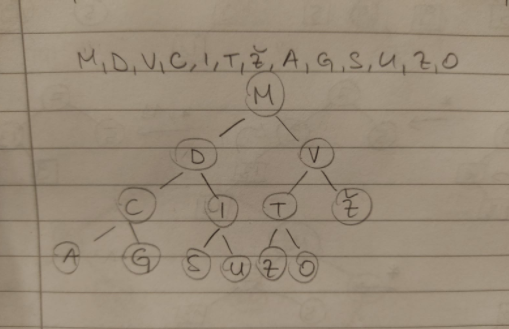 M, D, V, C, I, T, Ž, A, G, S, U, Z, O
M
D V
C I T Ž
A G S U Z O